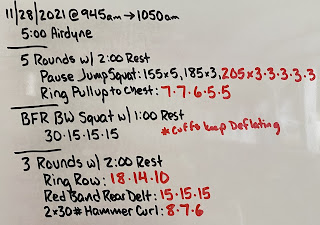 11/28/2021 @ 945am → 1050am
5:00 Airdyne
5 Rounds w/ 2:00 Rest
Pause Jump Squat: 155x5, 185x3, 205x3·3·3·3·3
Ring Pullup to Chest: 7·7·6·5·5
BFR BW Squat w/ 1:00 Rest
30·15·15·15 *Cuffs keep Deflating
3 Rounds w/ 2:00 Rest
Ring Row: 18·14·10
Red Band Rear Delt: 15·15·15
2x30# Hammer Curl: 8·7·6